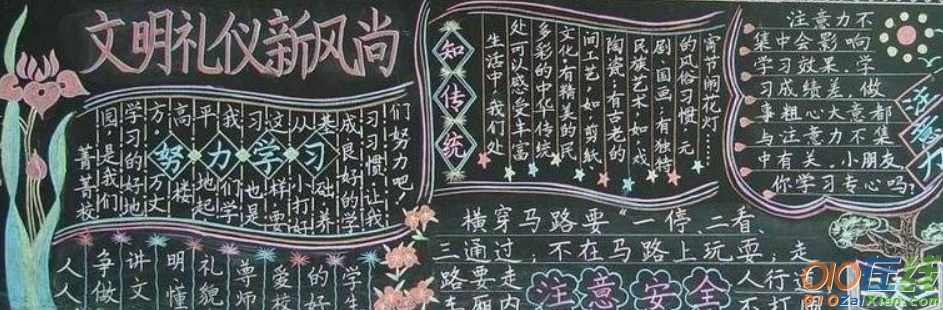 文明礼仪新风尚
菁菁校
园,是我们
学习的好地
方。万丈
高楼
平地起
我们学
习也是
这样要
从小打好
基础养
成良好的学
习习惯让我
们努力吧!
努力学习
人人
争做
讲文
明懂
礼貌
尊师
爱校
的好
学生
知传统
生活中,我们处
处可以感受丰富
多彩的中华传统
文化,有精美的民
间工艺,如:剪纸
陶瓷;有古老的
民族艺术,如:戏
剧、国画;有独特
的风俗习惯:元
宵节闹花灯……
注意力不
集中会影响
学习效果,学
习成绩差,做
事粗心大意都
与注意力不集
中有关,小朋友
你学习专心吗?
注意力
横穿马路要"一停、二看、
三通过,不在马路上玩耍,走
路要走 人行道
注意安全
010在线
010ZaiXian.com